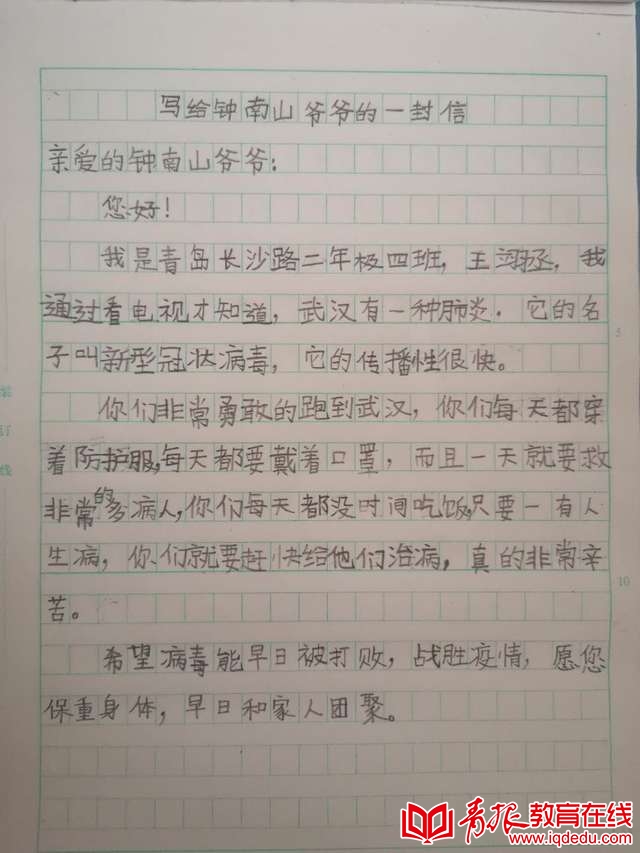 写给钟南山爷爷的一封信
亲爱的钟南山爷爷：
您好！
我是青岛长沙路二年极四班，王翊拯，我
通过看电视才知道，武汉有一种肺炎．它的名
子叫新型冠状病毒，它的传播性很快。
你们非常勇敢的跑到武汉，你们每天都穿
着防护服，每天都要戴着口罩，而且一天就要救
非常的多病人，你们每天都没时间吃饭，只要一有人
生病，你们就要赶快给他们治病，真的非常辛
苦。
希望病毒能早日被打败，战胜疫情，愿您
保重身体，早日和家人团聚。
5
10
装
订
线
青报教育在线
www.iqdedu.com